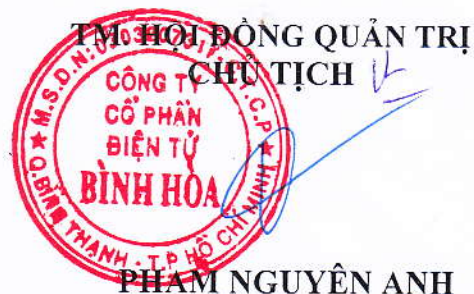 TM. HỘI ĐỒNG QUẢN TRỊ
CHỦ TỊCH
CÔNG TY
CỔ PHẦN
ĐIỆN TỬ
BÌNH HÒA
Q.BÌNH THẠNH - T.P HỒ CHÍ MINH
PHẠM NGUYÊN ANH